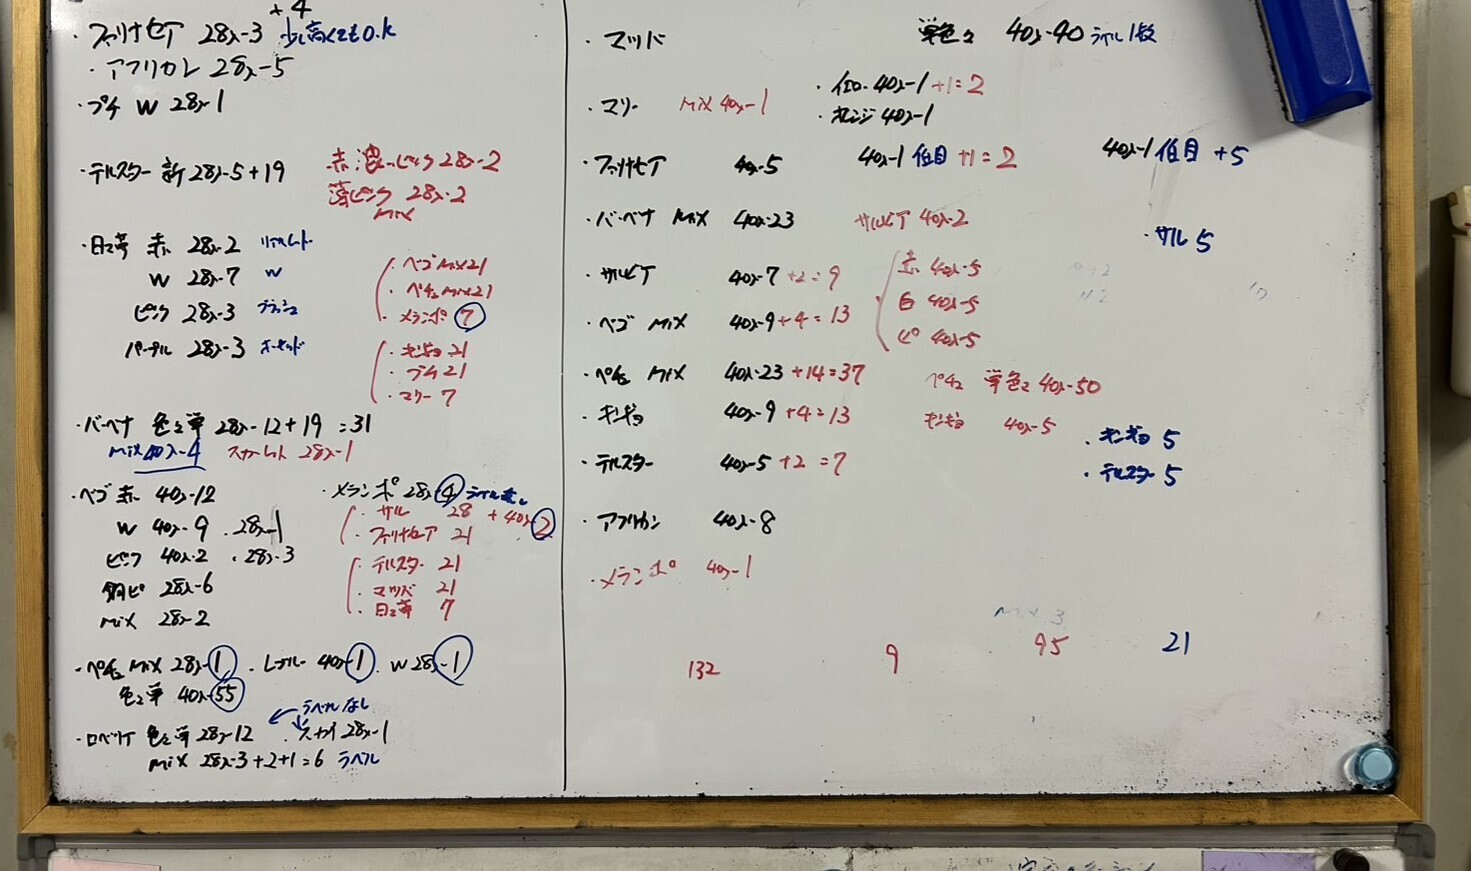 +4
・ファリナセア 28入-3 少し高くても o.k
・アフリカン 28入-5
・プチ W 28入-1
・テルスター 新 28入-5+19
赤 濃ピンク 28入-2
薄ピンク 28入-2
MiX
・日々草 赤 28入-2
W 28入-7 W
ピンク 28入-3
パープル 28入-3
・ベゴ MiX 21
・ペチュ MiX 21
・メランポ 7
・キンギョ 21
・プチ 21
・マリー 7
・バーベナ 色々単 28入-12+19 =31
MiX 40入-4 スカーレット 28入-1
・ベゴ 赤 40入-12
W 40入-9 ・28入-1
ピンク 40入-2 ・28入-3
銅ピ 28入-6
MiX 28入-2
・メランポ 28入-4 ラベル無し
・サル 28 + 40入-2
・ファリナセア 21
・テルスター 21
・マリーゴ 21
・日々草 7
・ペチュ MiX 28入-1 ・レッド 40入-1 ・W 28入-1
色々単 40入-55
・ロベリア 色々単 28入-12 ・スカイ 28入-1
ラベルなし
MiX 28入-3+2+1=6 ラベル
・マリーゴ 単色々 40入-40 ラベル1枚
・マリー MiX 40入-1
・イエロー 40入-1 +1=2
・オレンジ 40入-1
・ファリナセア 40入-5 40入-1 +1=2 40入-1 +5
・バーベナ MiX 40入-23 サルビア 40入-2
・サル 5
・サルビア 40入-7 +2=9
・赤 40入-5
白 40入-5
ピ 40入-5
・ベゴ MiX 40入-9+4=13
・ペチュ MiX 40入-23 +14=37 ペチュ 単色々 40入-50
・キンギョ 40入-9 +4=13 キンギョ 40入-5 ・キンギョ 5
・テルスター 40入-5 +2 =7 ・テルスター 5
・アフリカン 40入-8
・メランポ 40入-1
MiX 3
132 9 95 21